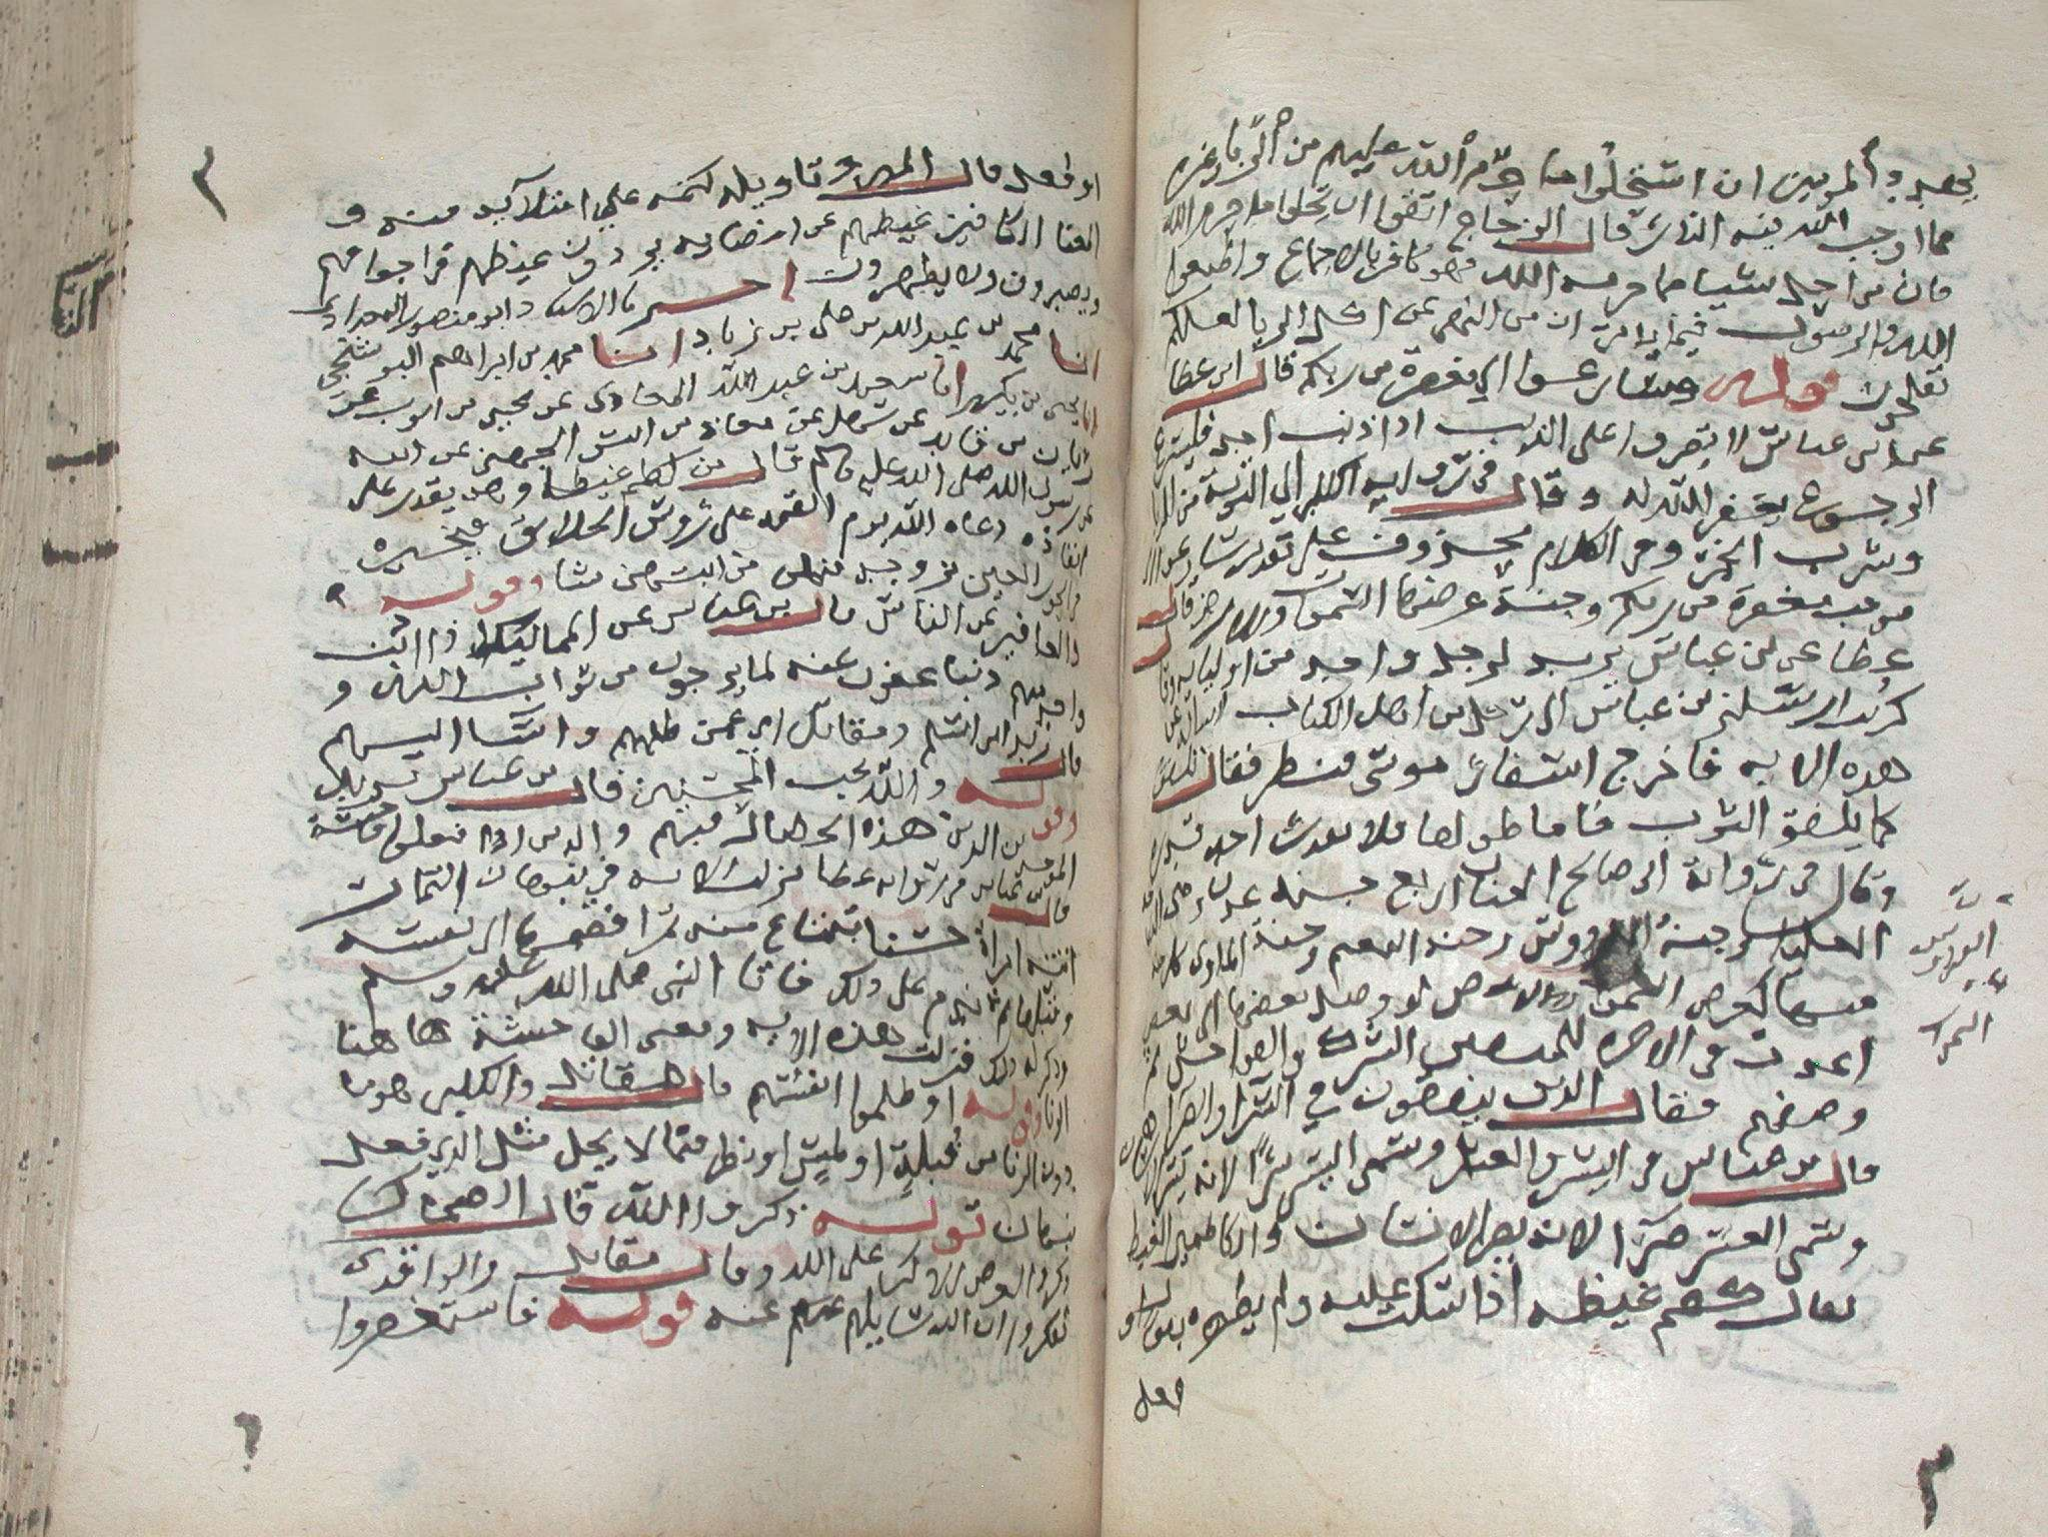 المومنين ان استحلوا ما حرم الله عليهم من الربا وغيره
مما اوجب الله فيه النار قال الزجاج اتقوا ان تحلوا ما حرم الله
فان من احل شيا مما حرمه الله فهو كافر بالاجماع واطيعوا
الله والرسول فيما يامركم من اكل الربا لعلكم
تفلحون قوله وسارعوا الى مغفرة من ربكم قال ابن عطا
عن ابن عباس لا تصروا على الذنب اذا اذنب احد فليسرع
الرجوع يغفر الله له وقال في رواية الكلبي الى التوبة من الربا
وشرب الخمر وفي الكلام محذوف على تقدير
موجب مغفرة من ربكم وجنة عرضها السموات والارض قال
عطا عن ابن عباس يريد لرجل واحد من اوليايه وقال
كريب ارسلني بن عباس الى رجل من اهل الكتاب اساله عن
هذه الايه فاخرج اسفار موسى فنظر فقال تلفق
كما يلفق الثوب فاما طولها فلا يقدر احد قدره
وقال في رواية ابي صالح الجنان اربع جنة عدن وهي الدرجة
العليا وجنة الفردوس وجنة النعيم وجنة الماوى كل جنة
منها كعرض السموات والارض لو وصل بعضها الى بعض
الفردوس
السموات
اعدت للمتقين الشرك والفواحش ثم
وصفهم فقال الذين ينفقون في السرا والضرا
قال بن عباس في اليسر والعسر وسمى اليسر سرا لانه يسر الانسان
وسمى العسر ضرا لانه يضر الانسان والكاظمين الغيظ
يقال كظم غيظه اذا سكت عليه ولم يظهره بقول او
فعل
او فعل قال المبرد وتاويله كتمه على امتلايه منه و
الكافين غيظهم عن امضايه يردون غيظهم في اجوافهم
ويصبرون ولا يظهرون اخبرنا الاستاد ابو منصور البغدادي
انا محمد بن عبد الله بن علي بن زياد انا محمد بن ابراهيم البوشنجي
انا يحيى بن بكير انا سعيد بن عبد الله المعافري عن يحيى بن ايوب عن
زبان بن فايد عن سهل بن معاذ بن انس الجهني عن ابيه
عن رسول الله صلى الله عليه وسلم قال من كظم غيظه وهو يقدر على
انفاذه دعاه الله يوم القيمة على رؤس الخلايق حتى يخيره
في الحور العين يزوجه منهن من ايتهن شا وقوله
والعافين عن الناس قال بن عباس عن المماليك اذا اذنب
واحد منهم ذنبا عفون عنه لما يرجون من ثواب الله و
قال زيد ابن اسلم ومقاتل اي عمن ظلمهم واسا اليهم
وقوله والله يحب المحسنين قال بن عباس يريد
الموحدين الذين هذه الخصال فيهم والذين اذا فعلوا فاحشة
قال بن عباس في رواية عطا نزلت الايه في نبهان التمار
اتته امراة حسنا تبتاع منه تمرا فضمها الى نفسه
وقبلها ثم ندم على ذلك فاتا النبي صلى الله عليه وسلم
وذكر له ذلك فنزلت هذه الايه ومعنى الفاحشة هاهنا
الزنا وقوله او ظلموا انفسهم قال مقاتل والكلبي هو ما
دون الزنا من قبلة او لمس او نظر فيما لا يحل مثل الذي فعل
نبهان قوله ذكروا الله قال الضحاك
ذكروا العرض الاكبر على الله وقال مقاتل والواقدي
تفكروا ان الله سايلهم عنه قوله فاستغفروا